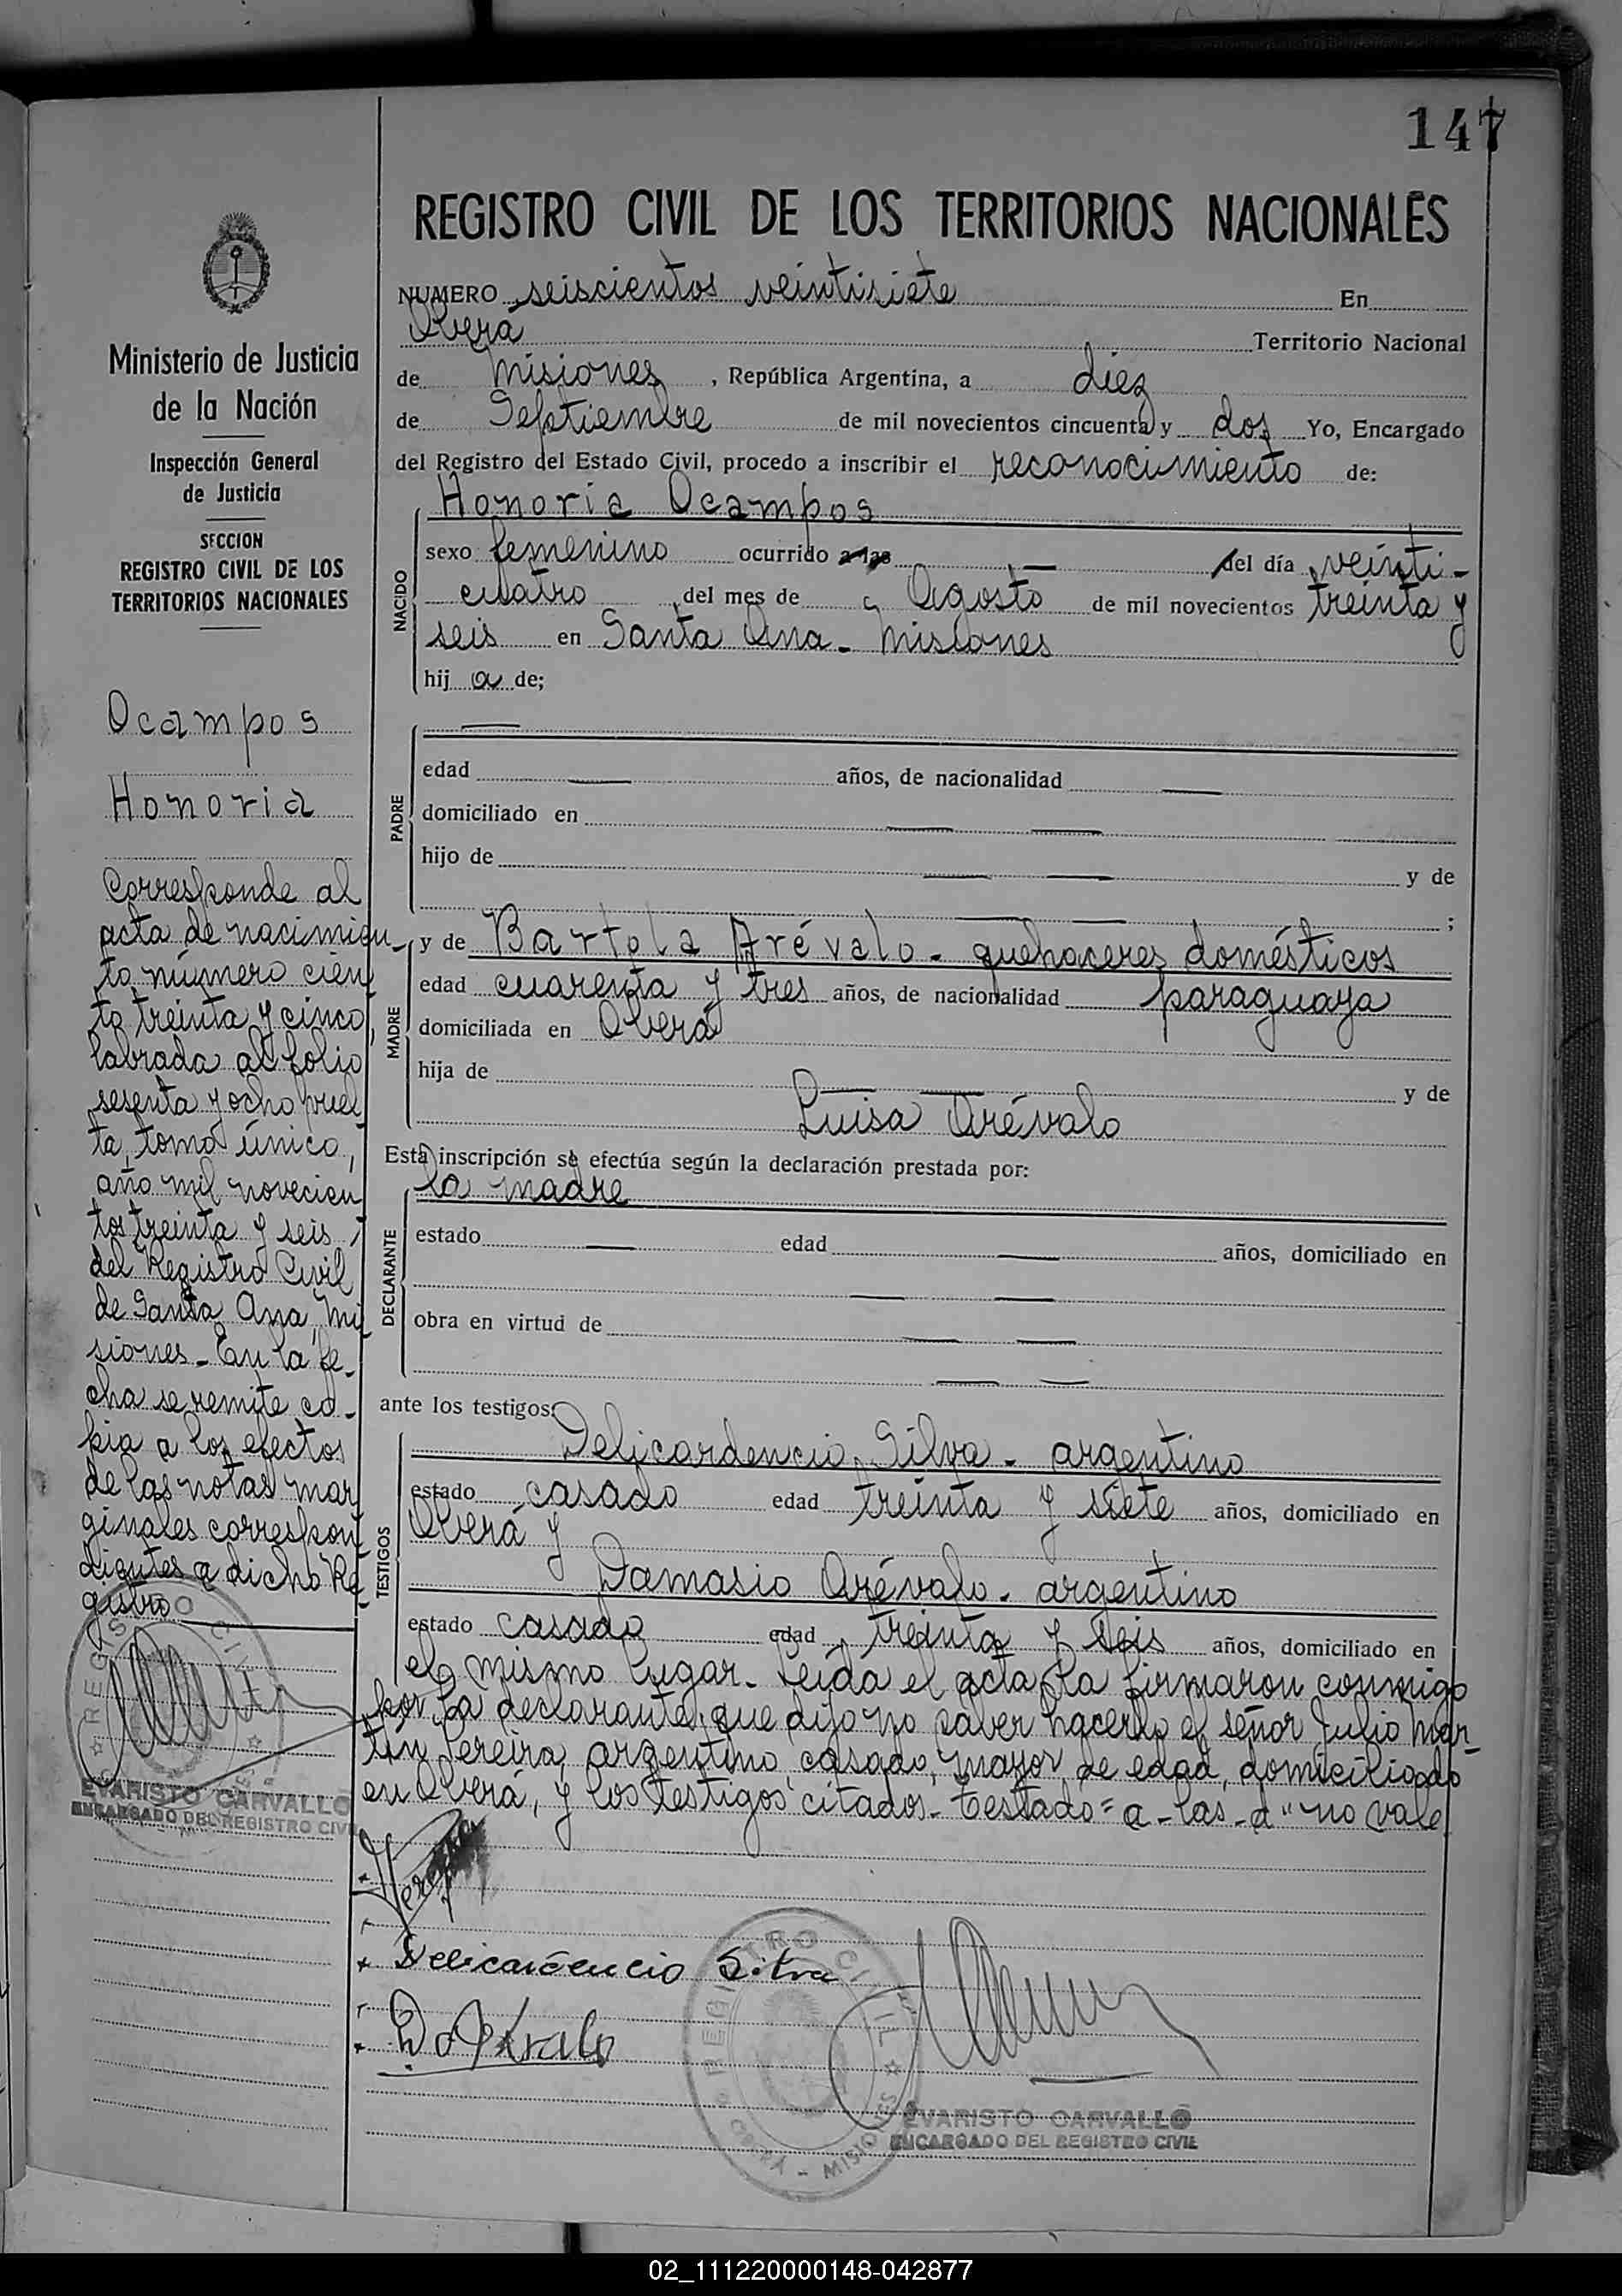 147
REGISTRO CIVIL DE LOS TERRITORIOS NACIONALES
Ministerio de Justicia
de la Nación
Inspección General
de Justicia
SECCION
REGISTRO CIVIL DE LOS
TERRITORIOS NACIONALES
Ocampos
Honoria
Corresponde al
acta de nacimien-
to número cien
to treinta y cinco,
labrada al folio
sesenta y ocho vuel
ta, tomo único,
año mil novecien
tos treinta y seis,
del Registro Civil
de Santa Ana, Mi
siones_ En la fe_
cha se remite co_
pia a los efectos
de las notas mar
ginales correspon
dientes a dicho Re
gistro
EVARISTO CARVALLO
ENCARGADO DEL REGISTRO CIVIL
NUMERO seiscientos veintisiete En
Oberá Territorio Nacional
de Misiones, República Argentina, a diez
de Septiembre de mil novecientos cincuenta y dos Yo, Encargado
del Registro del Estado Civil, procedo a inscribir el reconocimiento de:
NACIDO
Honoria Ocampos
sexo femenino ocurrido a las — del día veinti-
cuatro del mes de Agosto de mil novecientos treinta y
seis en Santa Ana - Misiones
hij a de;
PADRE
—
edad — años, de nacionalidad —
domiciliado en — —
hijo de — — y de
— — ;
MADRE
y de Bartola Arévalo - quehaceres domésticos
edad cuarenta y tres años, de nacionalidad paraguaya
domiciliada en Oberá
hija de — — y de
Luisa Arévalo
Esta inscripción se efectúa según la declaración prestada por:
DECLARANTE
la madre
estado — edad — años, domiciliado en
— —
obra en virtud de — —
— —
ante los testigos:
TESTIGOS
Delicardencio Silva - argentino
estado casado edad treinta y siete años, domiciliado en
Oberá y
Damasio Arévalo - argentino
estado casado edad treinta y seis años, domiciliado en
el mismo lugar_ Leída el acta la firmaron conmigo
por la declarante, que dijo no saber hacerlo el señor Julio Mar_
tín Pereira, argentino, casado, mayor de edad, domiciliado
en Oberá, y los testigos citados_ Testado = a - las - d" no vale
Delicardencio Silva
D. Arévalo
REGISTRO CIVIL
OBERA - MISIONES
EVARISTO CARVALLO
ENCARGADO DEL REGISTRO CIVIL
02_111220000148-042877